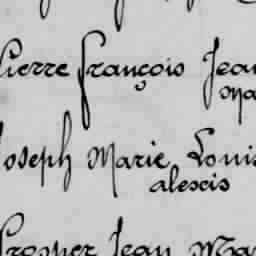 Pierre François Jean
Ma
Joseph Marie Louis
alexis
Prosper Jean Ma